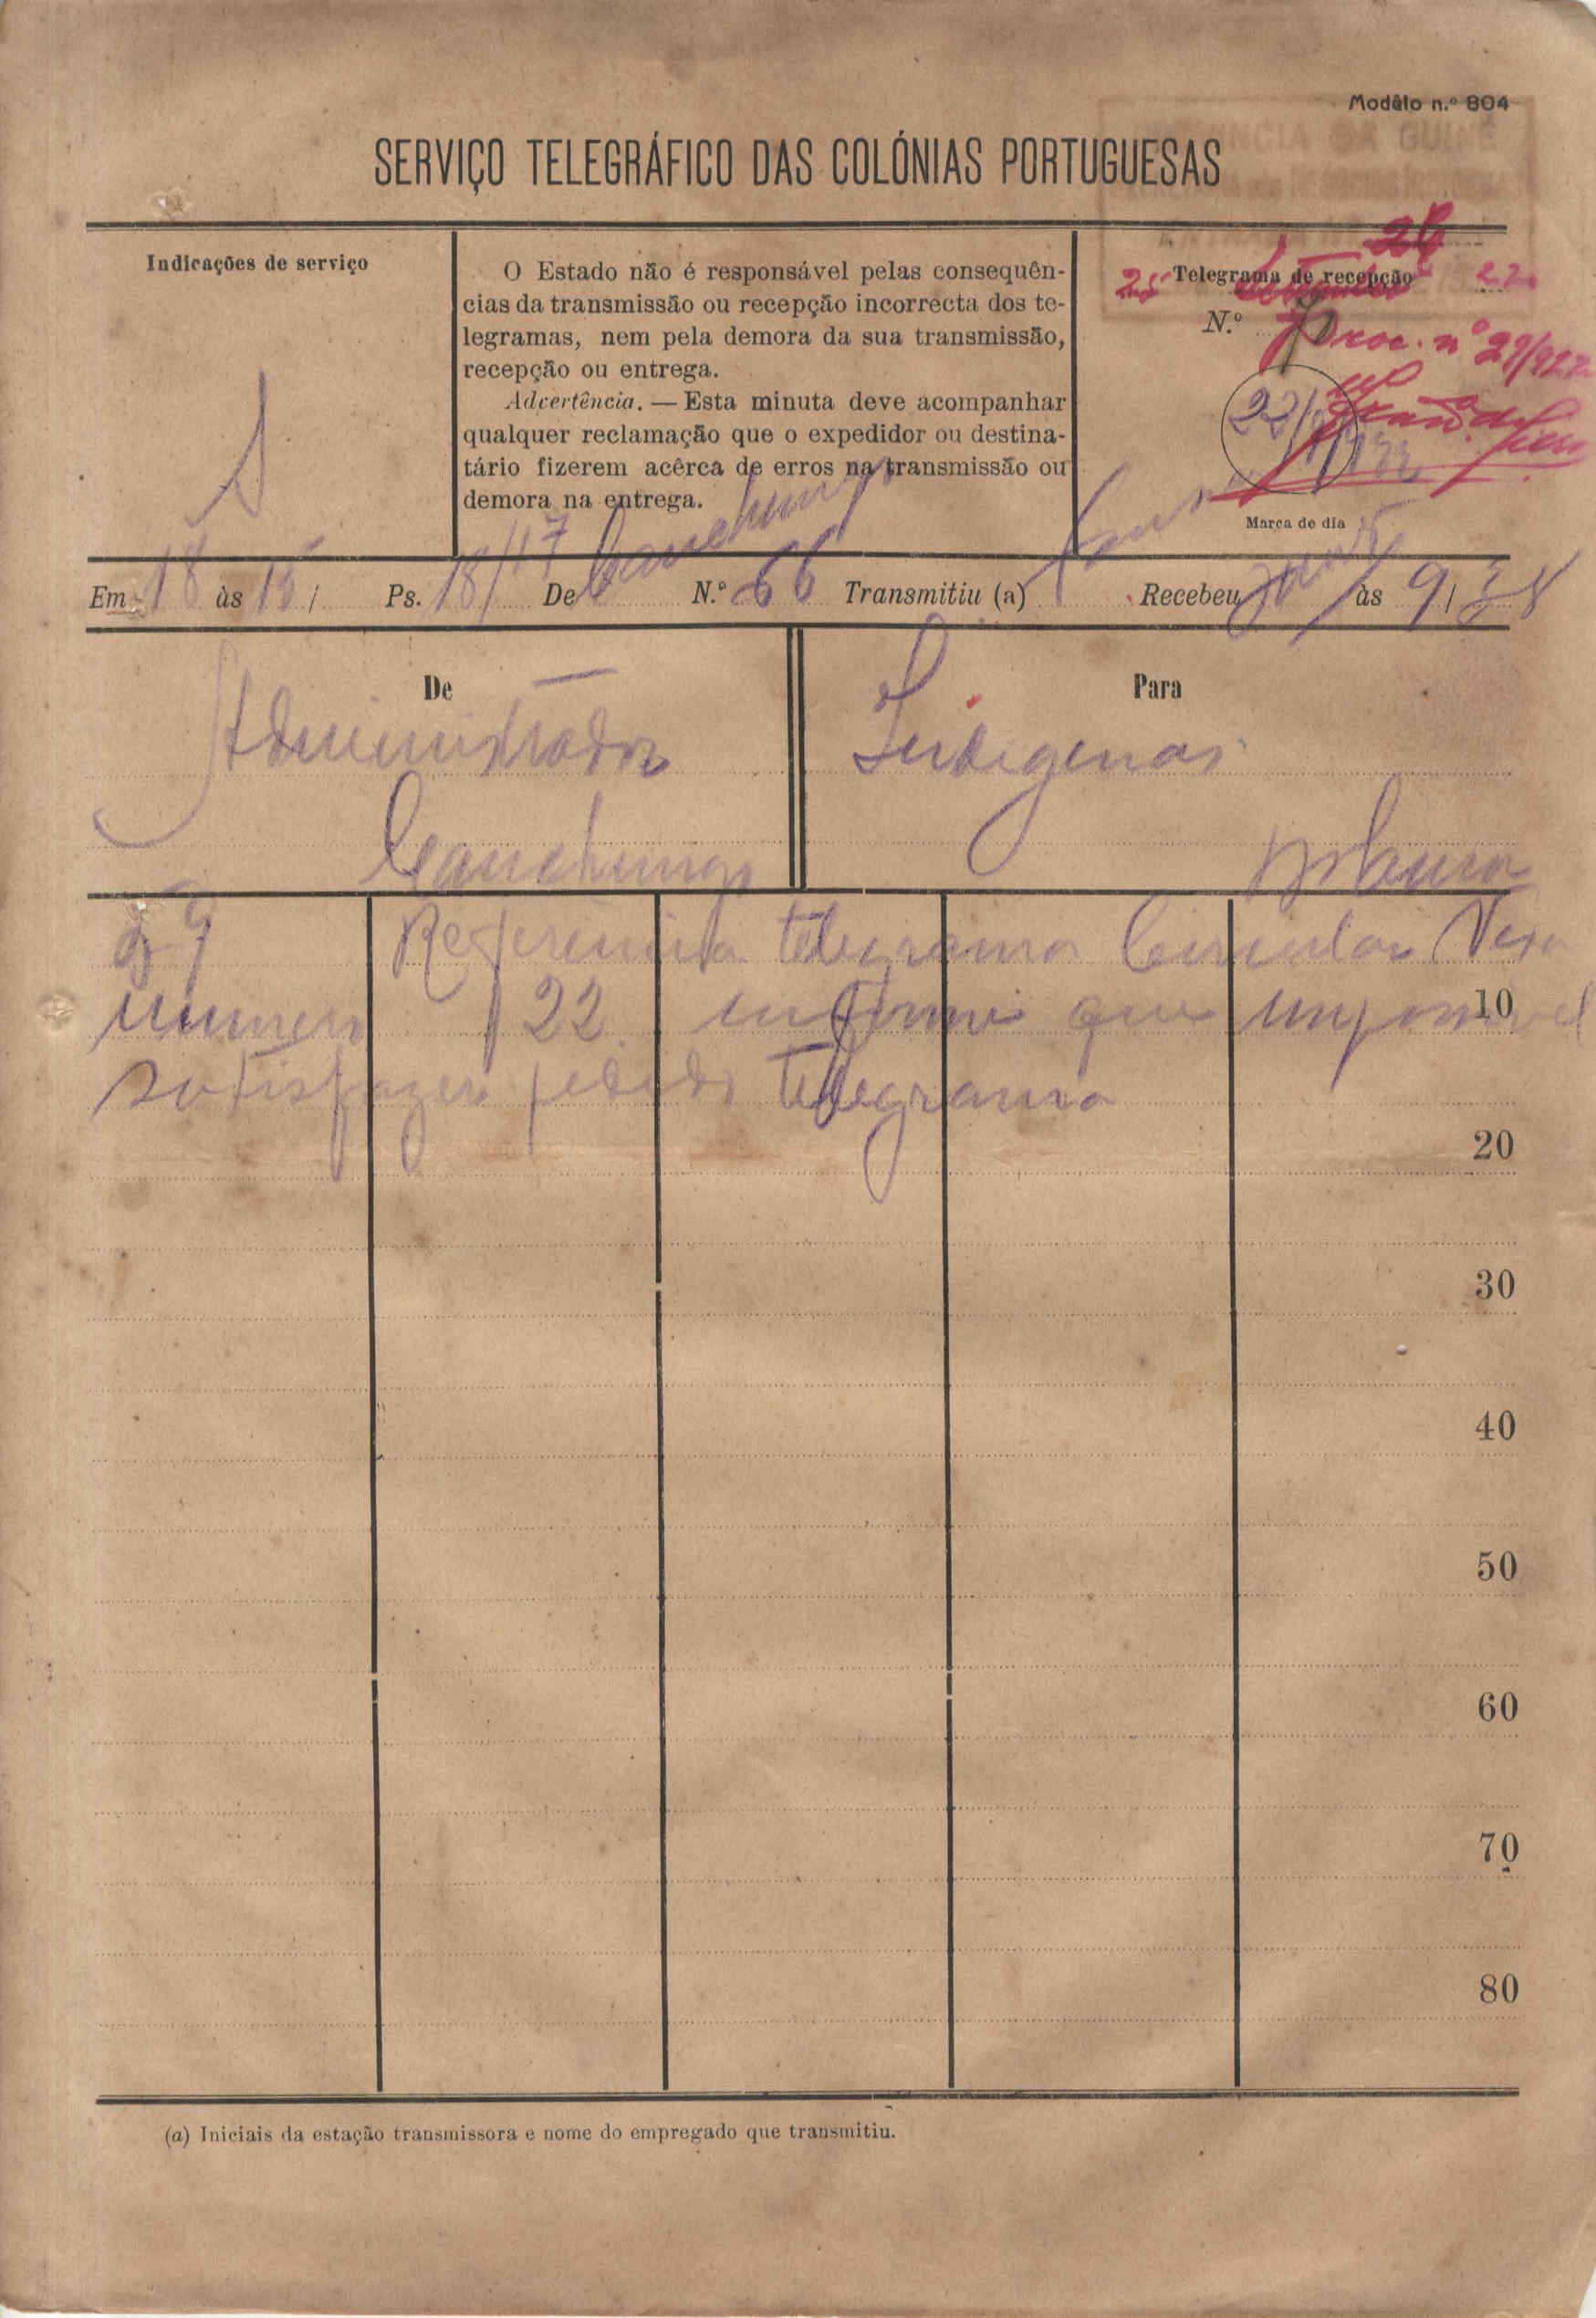 Modêlo n.º 804
PROVINCIA DA GUINÉ
SERVIÇO TELEGRÁFICO DAS COLÓNIAS PORTUGUESAS
Indicações de serviço
S
O Estado não é responsável pelas consequên-
cias da transmissão ou recepção incorrecta dos te-
legramas, nem pela demora da sua transmissão,
recepção ou entrega.
Advertência. — Esta minuta deve acompanhar
qualquer reclamação que o expedidor ou destina-
tário fizerem acêrca de erros na transmissão ou
demora na entrega.
26
Telegrama de recepção
25 Setembro 22
N.º
Proc. nº 29/922
22/
Marca do dia
Em 18 às 15 / Ps. 18/17 De Canchungo N.º 66 Transmitiu (a) Recebeu às 9/38
De
Administrador
Canchungo
Para
Indigenas
Bolama
27 Referencia telegrama Circular Vexa
numero 122 informo que impossivel
satisfazer pedido telegrama
10
20
30
40
50
60
70
80
(a) Iniciais da estação transmissora e nome do empregado que transmitiu.